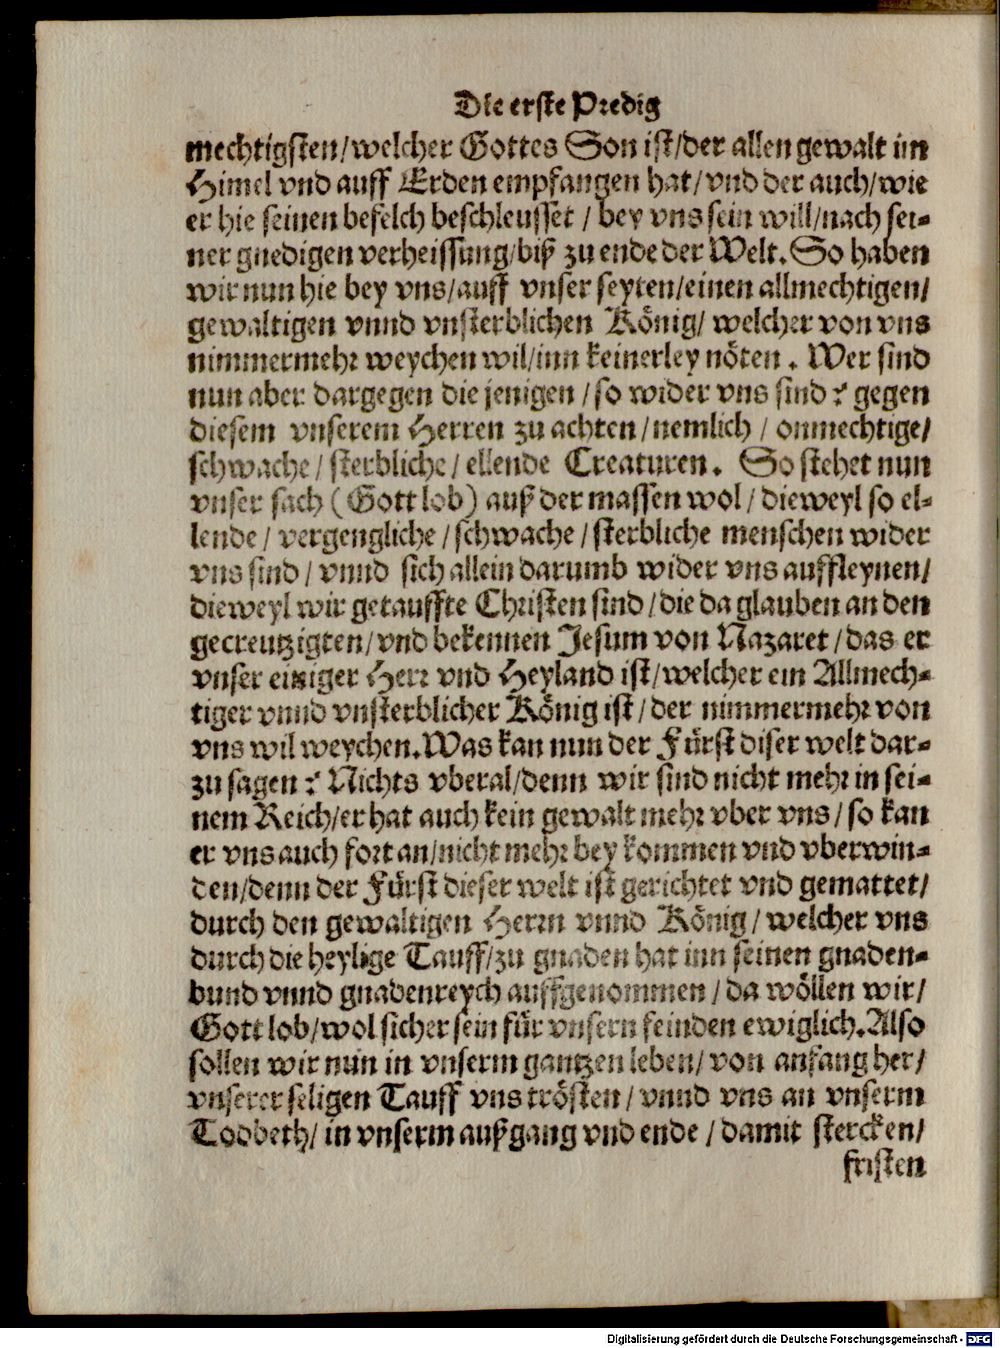 Die erste Predig
mechtigsten/welcher Gottes Son ist/der allen gewalt im
Himel vnd auff Erden empfangen hat/vnd der auch/wie
er hie seinen befelch beschleusset / bey vns sein will/nach sei-
ner gnedigen verheissung/biß zu ende der Welt. So haben
wir nun hie bey vns/auff vnser seyten/einen allmechtigen/
gewaltigen vnnd vnsterblichen König/ welcher von vns
nimmermehr weychen wil/inn keinerley nöten. Wer sind
nun aber dargegen die jenigen / so wider vns sind? gegen
diesem vnserem Herren zu achten / nemlich / onmechtige/
schwache / sterbliche / ellende Creaturen. So stehet nun
vnser sach (Gott lob) auß der massen wol / dieweyl so el-
lende / vergengliche / schwache / sterbliche menschen wider
vns sind / vnnd sich allein darumb wider vns auffleynen/
dieweyl wir getauffte Christen sind / die da glauben an den
gecreutzigten/ vnd bekennen Jesum von Nazaret / das er
vnser einiger Herr vnd Heyland ist/welcher ein Allmech-
tiger vnnd vnsterblicher König ist / der nimmermehr von
vns wil weychen. Was kan nun der Fürst diser welt dar-
zu sagen? Nichts vberal/denn wir sind nicht mehr in sei-
nem Reich/er hat auch kein gewalt mehr vber vns / so kan
er vns auch fort an/nicht mehr bey kommen vnd vberwin-
den/denn der Fürst dieser welt ist gerichtet vnd gemattet/
durch den gewaltigen Herrn vnnd König / welcher vns
durch die heylige Tauff/zu gnaden hat inn seinen gnaden-
bund vnnd gnadenreych auffgenommen / da wöllen wir/
Gott lob/wol sicher sein für vnsern feinden ewiglich. Also
sollen wir nun in vnserm gantzen leben/ von anfang her/
vnserer seligen Tauff vns trösten / vnnd vns an vnserm
Todbeth/ in vnserm außgang vnd ende / damit stercken/
fristen
Digitalisierung gefördert durch die Deutsche Forschungsgemeinschaft - DFG